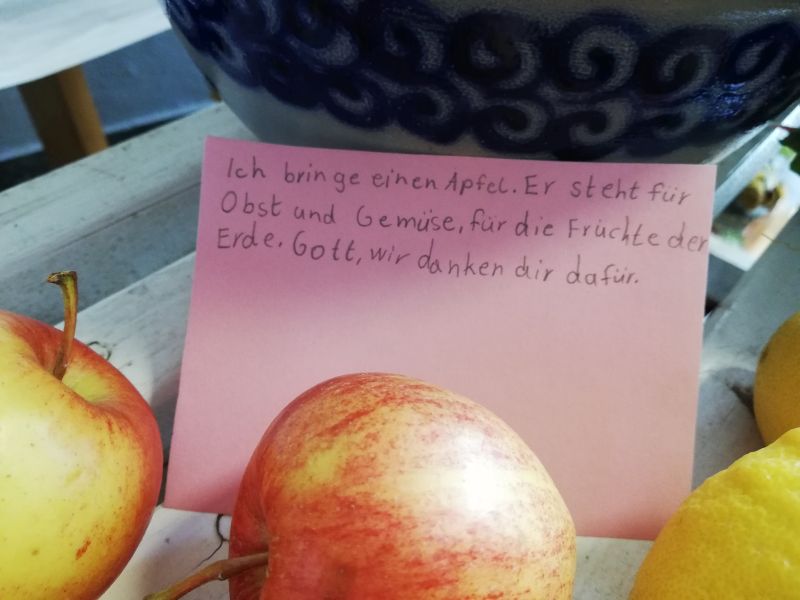 Ich bringe einen Apfel. Er steht für
Obst und Gemüse, für die Früchte der
Erde. Gott, wir danken dir dafür.